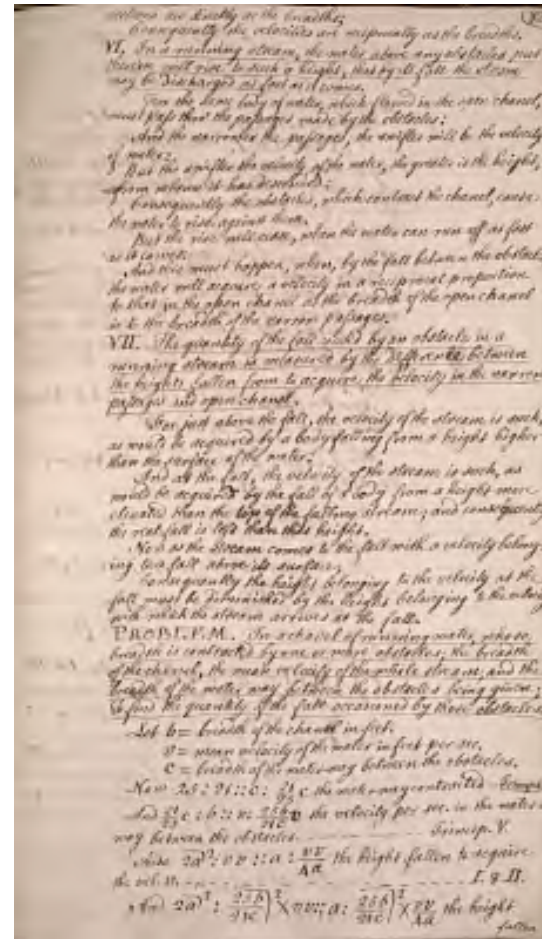 sections are directly as the breadths;
Consequently the velocities are reciprocally as the breadths.
VI. In a running stream, the water above any obstacles put
therein will rise to such a height, that by its fall the stream
may be discharged as fast as it comes.
For the same body of water, which flowed in the open chanel,
must pass thro' the passages made by the obstacles;
And the narrower the passages, the swifter will be the velocity
of water;
But the swifter the velocity of the water, the greater is the height,
from whence it has descended;
Consequently the obstacles, which contract the chanel, cause
the water to rise against them.
But the rise will cease, when the water can run off as fast
as it comes.
And this must happen, when, by the fall between the obstacles,
the water will acquire a velocity in a reciprocal proportion
to that in the open chanel as the breadth of the open chanel
is to the breadth of the narrow passages.
VII. The quantity of the fall caused by an obstacle in a
running stream is measured by the difference between
the heights fallen from to acquire the velocity in the narrow
passages and open chanel.
For just above the fall, the velocity of the stream is such,
as would be acquired by a body falling from a height higher
than the surface of the water;
And at the fall, the velocity of the stream is such, as
would be acquired by the fall of a body from a height more
elevated than the top of the falling stream; and consequently
the real fall is less than this height.
Now as the stream comes to the fall with a velocity belong-
ing to a fall above its surface;
Consequently the height belonging to the velocity at the
fall must be diminished by the height belonging to the velocity
with which the stream arrives at the fall.
PROBLEM. In a chanel of running water, whose
breadth is contracted by one or more obstacles; the breadth
of the chanel, the mean velocity of the whole stream, and the
breadth of the water way between the obstacles being given;
to find the quantity of the fall occasioned by those obstacles.
Let b = breadth of the chanel in feet.
v = mean velocity of the water in feet per sec.
c = breadth of the water-way between the obstacles.
Now 25 : 21 :: c : 21/25 c the water-way contracted
And 21/25 c : b :: v : 25b/21c v the velocity per sec. in the water
way between the obstacles. Princip. V.
Also 2a)² : vv :: a : vv/4a the height fallen to acquire
the vel. v. I. & II.
And 2a)² : 25b/21c)² × vv :: a : 25b/21c)² × vv/4a the height
fallen